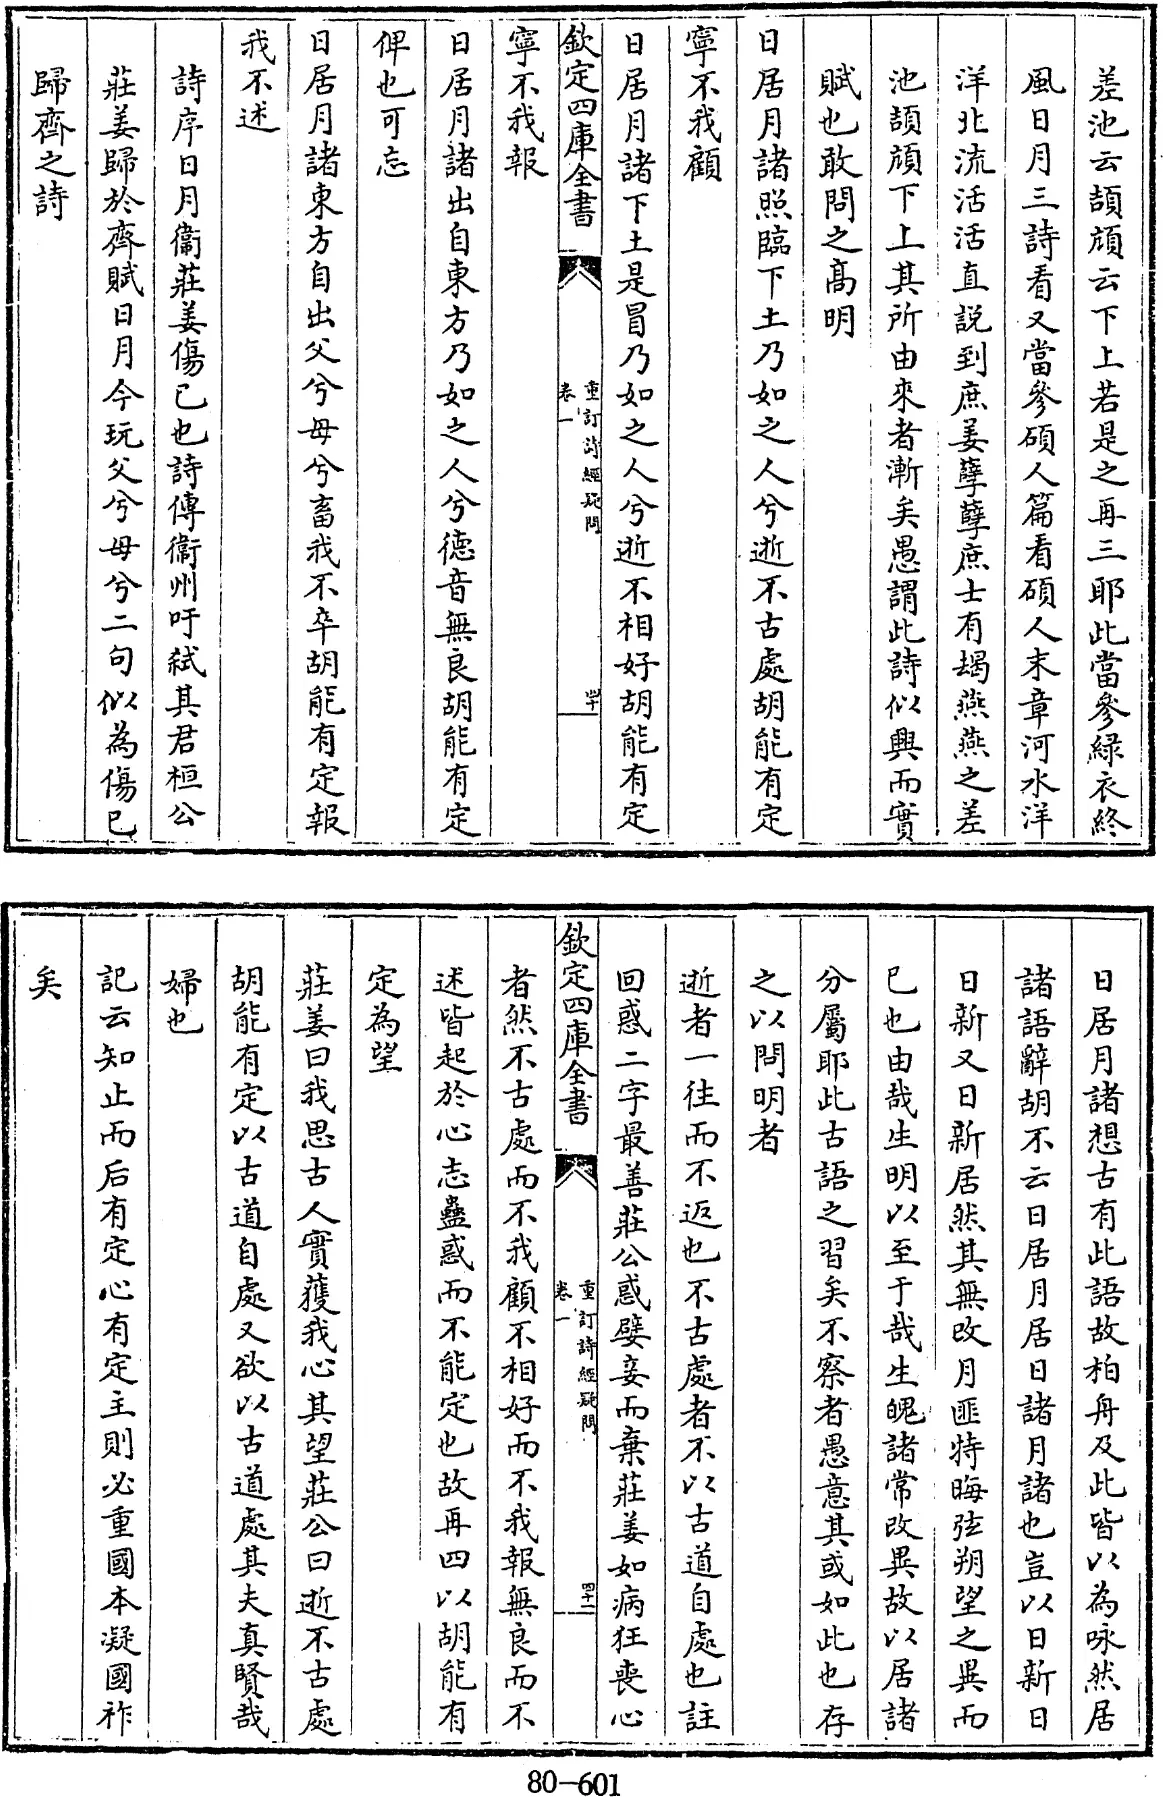 差池云頡頏云下上若是之再三耶此當參緑衣終
風日月三詩看又當參碩人篇看碩人末章河水洋
洋北流活活直説到庶姜孽孽庶士有朅燕燕之差
池頡頏下上其所由來者漸矣愚謂此詩似興而實
賦也敢問之高明
日居月諸照臨下土乃如之人兮逝不古處胡能有定
寧不我顧
日居月諸下土是冒乃如之人兮逝不相好胡能有定
欽定四庫全書
重訂詩經疑問
卷一
四十
寧不我報
日居月諸出自東方乃如之人兮德音無良胡能有定
俾也可忘
日居月諸東方自出父兮母兮畜我不卒胡能有定報
我不述
詩序日月衞莊姜傷已也詩傳衞州吁弑其君桓公
莊姜歸於齊賦日月今玩父兮母兮二句似為傷已
歸齊之詩
日居月諸想古有此語故柏舟及此皆以為咏然居
諸語辭胡不云日居月居日諸月諸也豈以日新日
日新又日新居然其無改月匪特晦弦朔望之異而
已也由哉生明以至于哉生魄諸常改異故以居諸
分屬耶此古語之習矣不察者愚意其或如此也存
之以問明者
逝者一往而不返也不古處者不以古道自處也註
回惑二字最善莊公惑嬖妾而棄莊姜如病狂喪心
欽定四庫全書
重訂詩經疑問
卷一
四十一
者然不古處而不我顧不相好而不我報無良而不
述皆起於心志蠱惑而不能定也故再四以胡能有
定為望
莊姜曰我思古人實獲我心其望莊公曰逝不古處
胡能有定以古道自處又欲以古道處其夫真賢哉
婦也
記云知止而后有定心有定主則必重國本凝國祚
矣
80-601